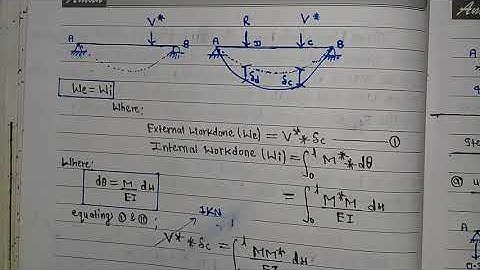 V* R V*
A B A D C B
δd δc
We = Wi
Where:
External Workdone (We) = V* * δc ①
Internal Workdone (Wi) = ∫₀ˡ M* * dθ
Where:
dθ = M/EI dx
= ∫₀ˡ M*M/EI dx
equating ① & ⑪ ;
1KN
V* * δc = ∫ˡ MM*/EI dx